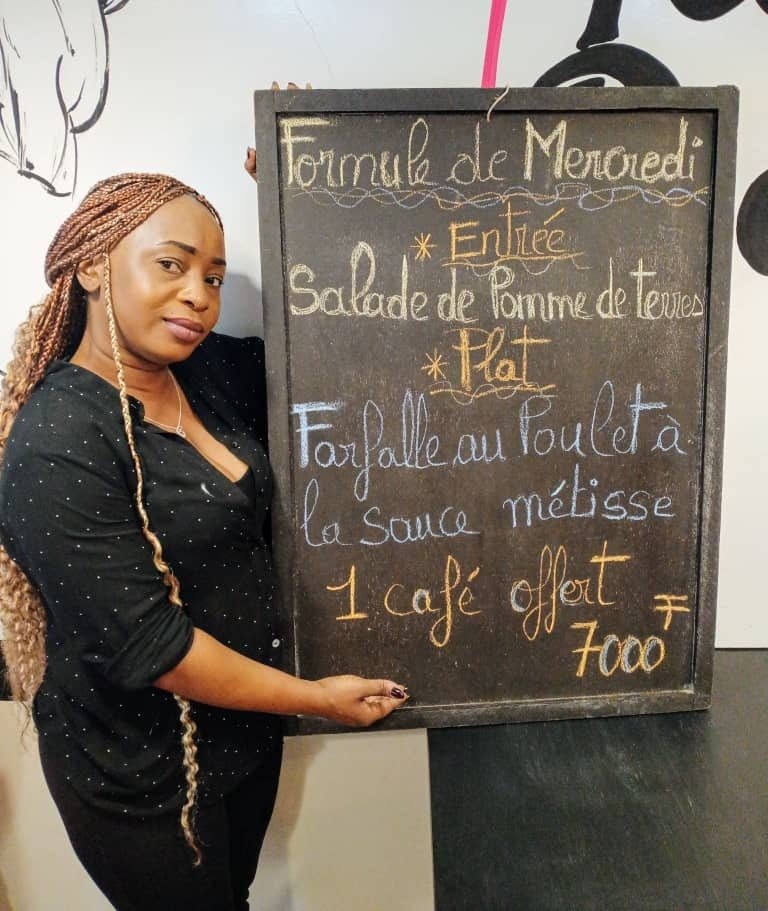 Formule de Mercredi
* Entrée
Salade de Pomme de terres
* Plat
Farfalle au Poulet à
la sauce métisse
1 café offert
7000 F